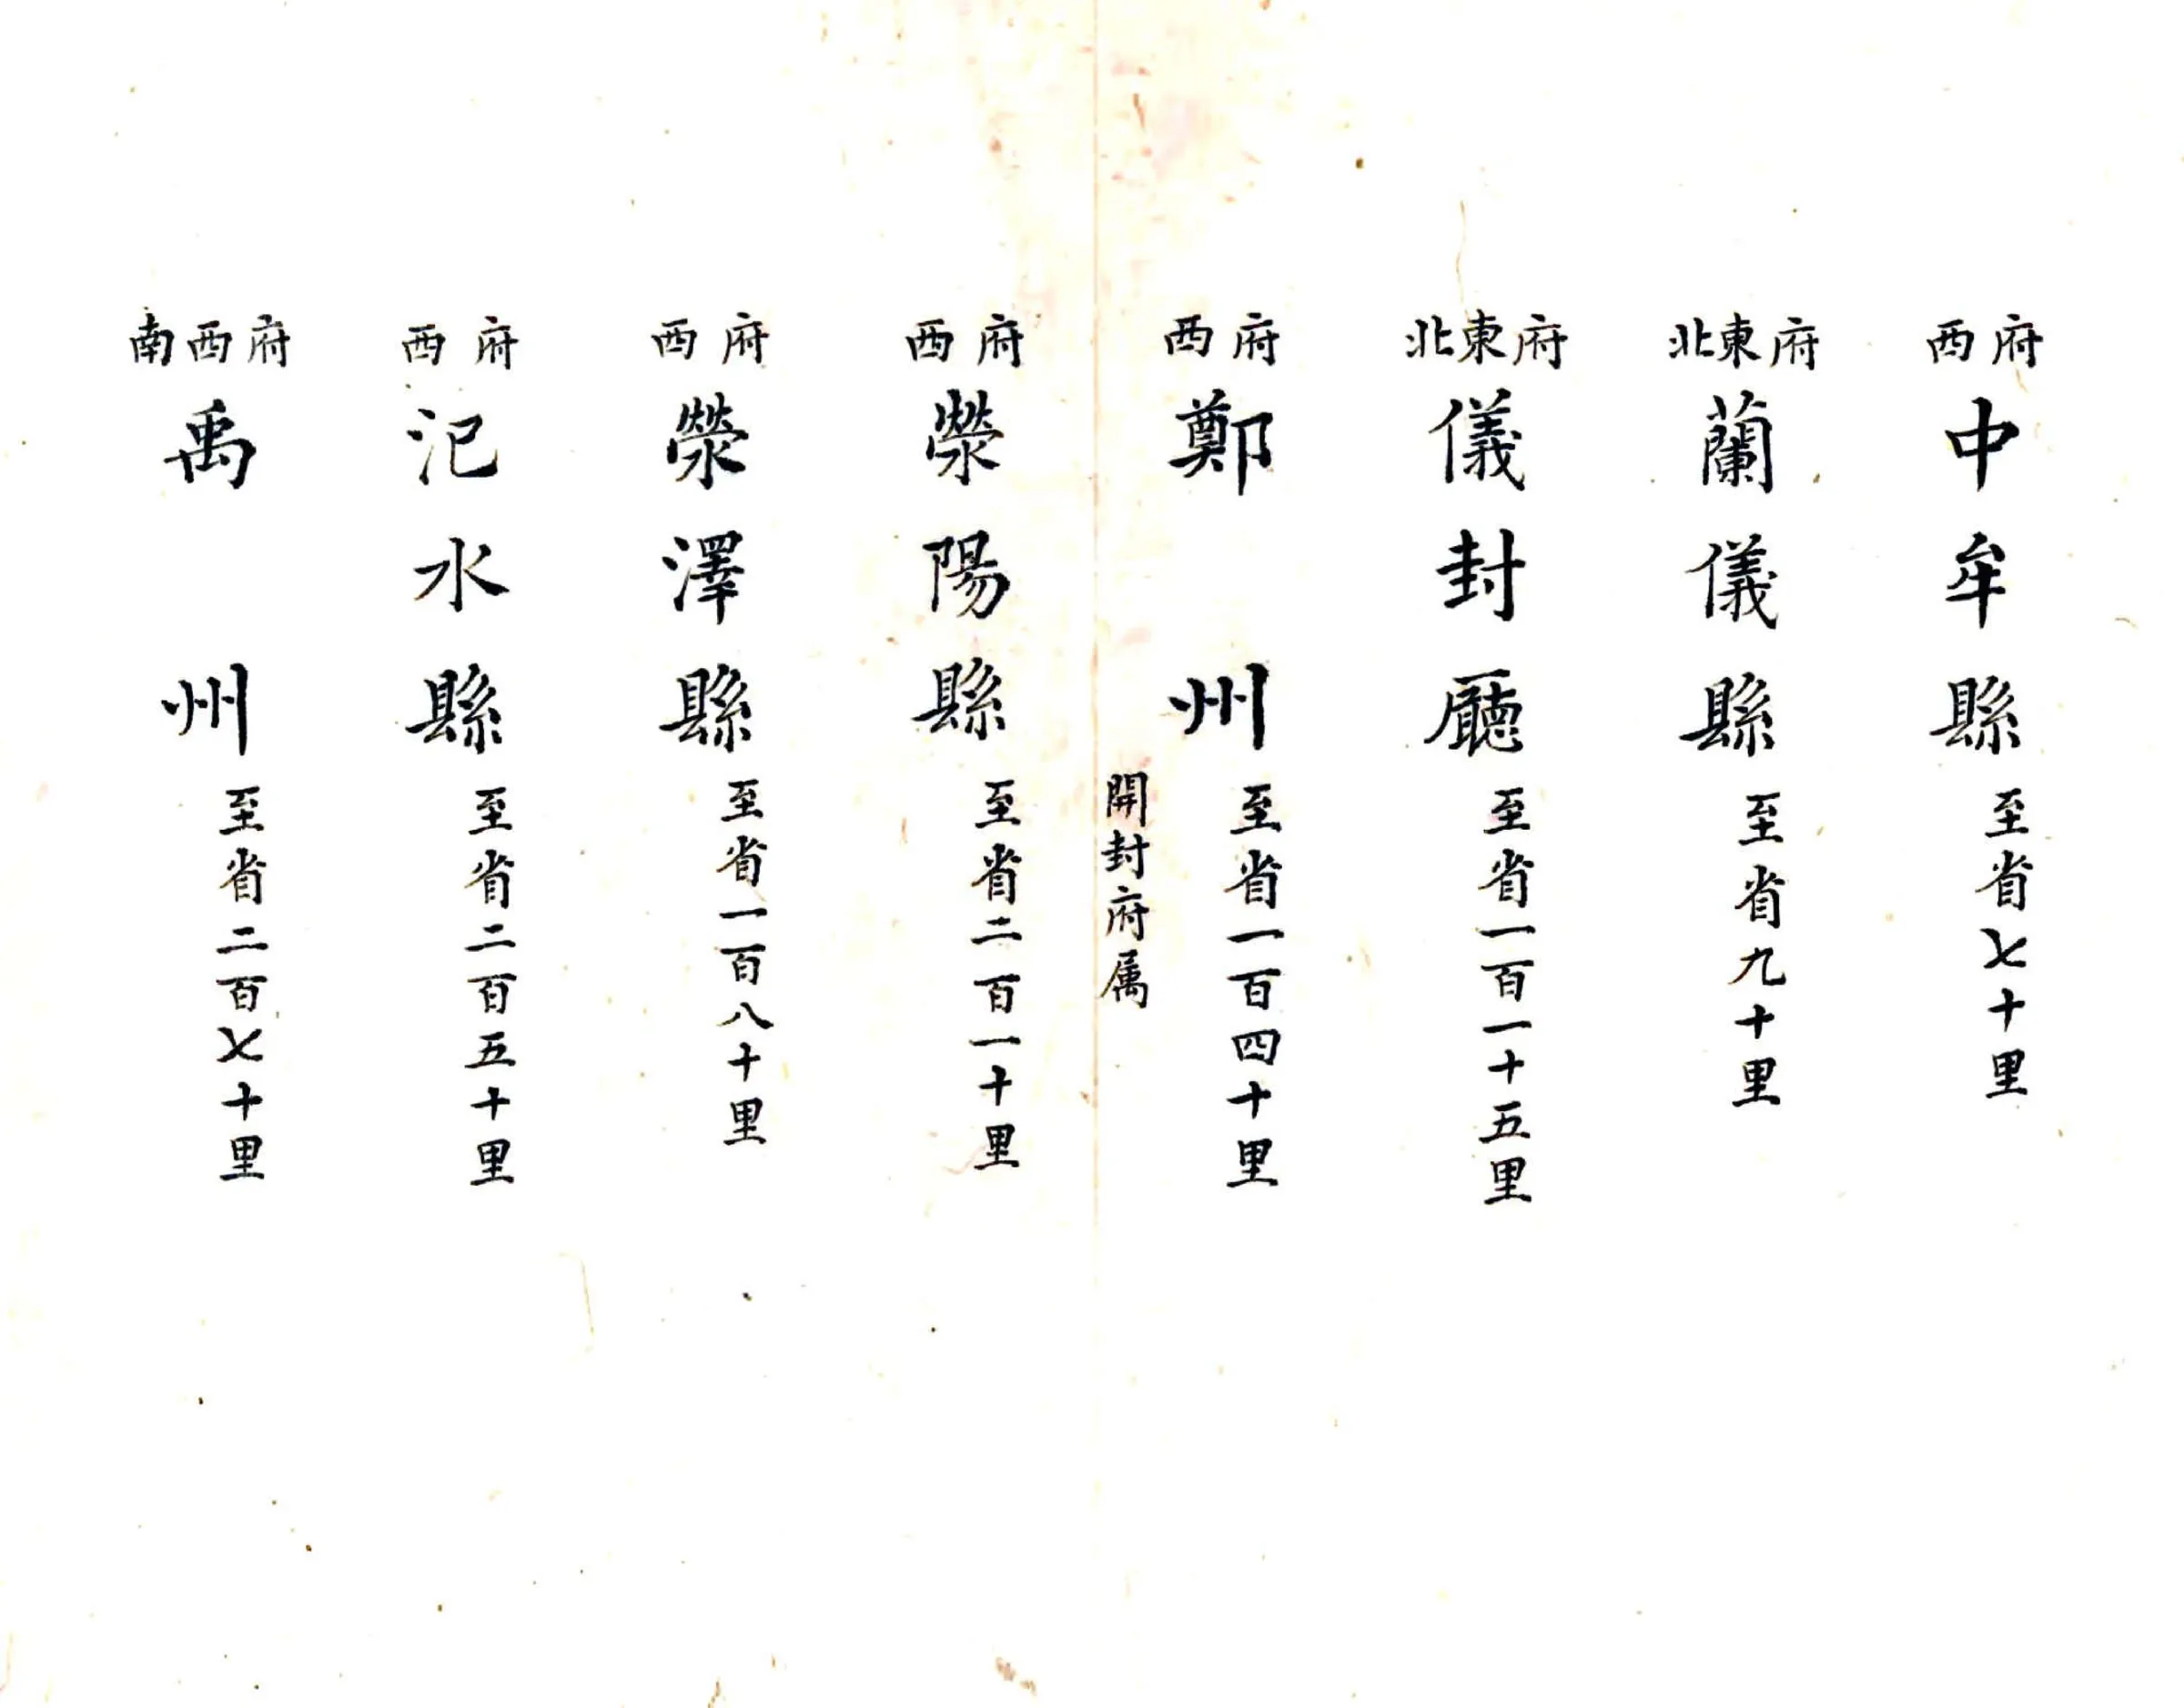 府西
中牟縣
至省七十里
府東北
蘭儀縣
至省九十里
府東北
儀封廳
至省一百一十五里
府西
鄭州
至省一百四十里
開封府属
府西
滎陽縣
至省二百一十里
府西
滎澤縣
至省一百八十里
府西
汜水縣
至省二百五十里
府西南
禹州
至省二百七十里